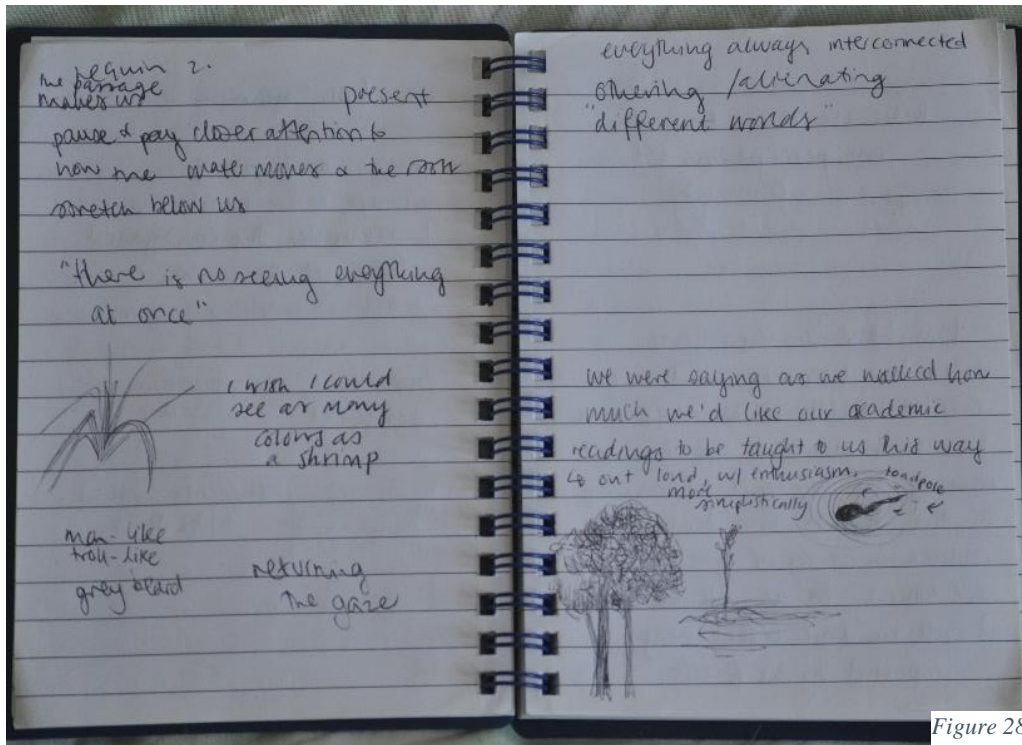 Leguin 2.
the passage
makes us present
pause & pay closer attention to
how the water moves & the
stretch below us
"there is no seeing everything
at once"
I wish I could
see as many
colors as
a shrimp
man-like
troll-like
grey beard
returning
the gaze
everything always interconnected
othering /alienating
"different worlds"
We were saying as we walked how
much we'd like our academic
readings to be taught to us this way
↳ out loud, w/ enthusiasm,
more
simplistically
toadpole
Figure 28